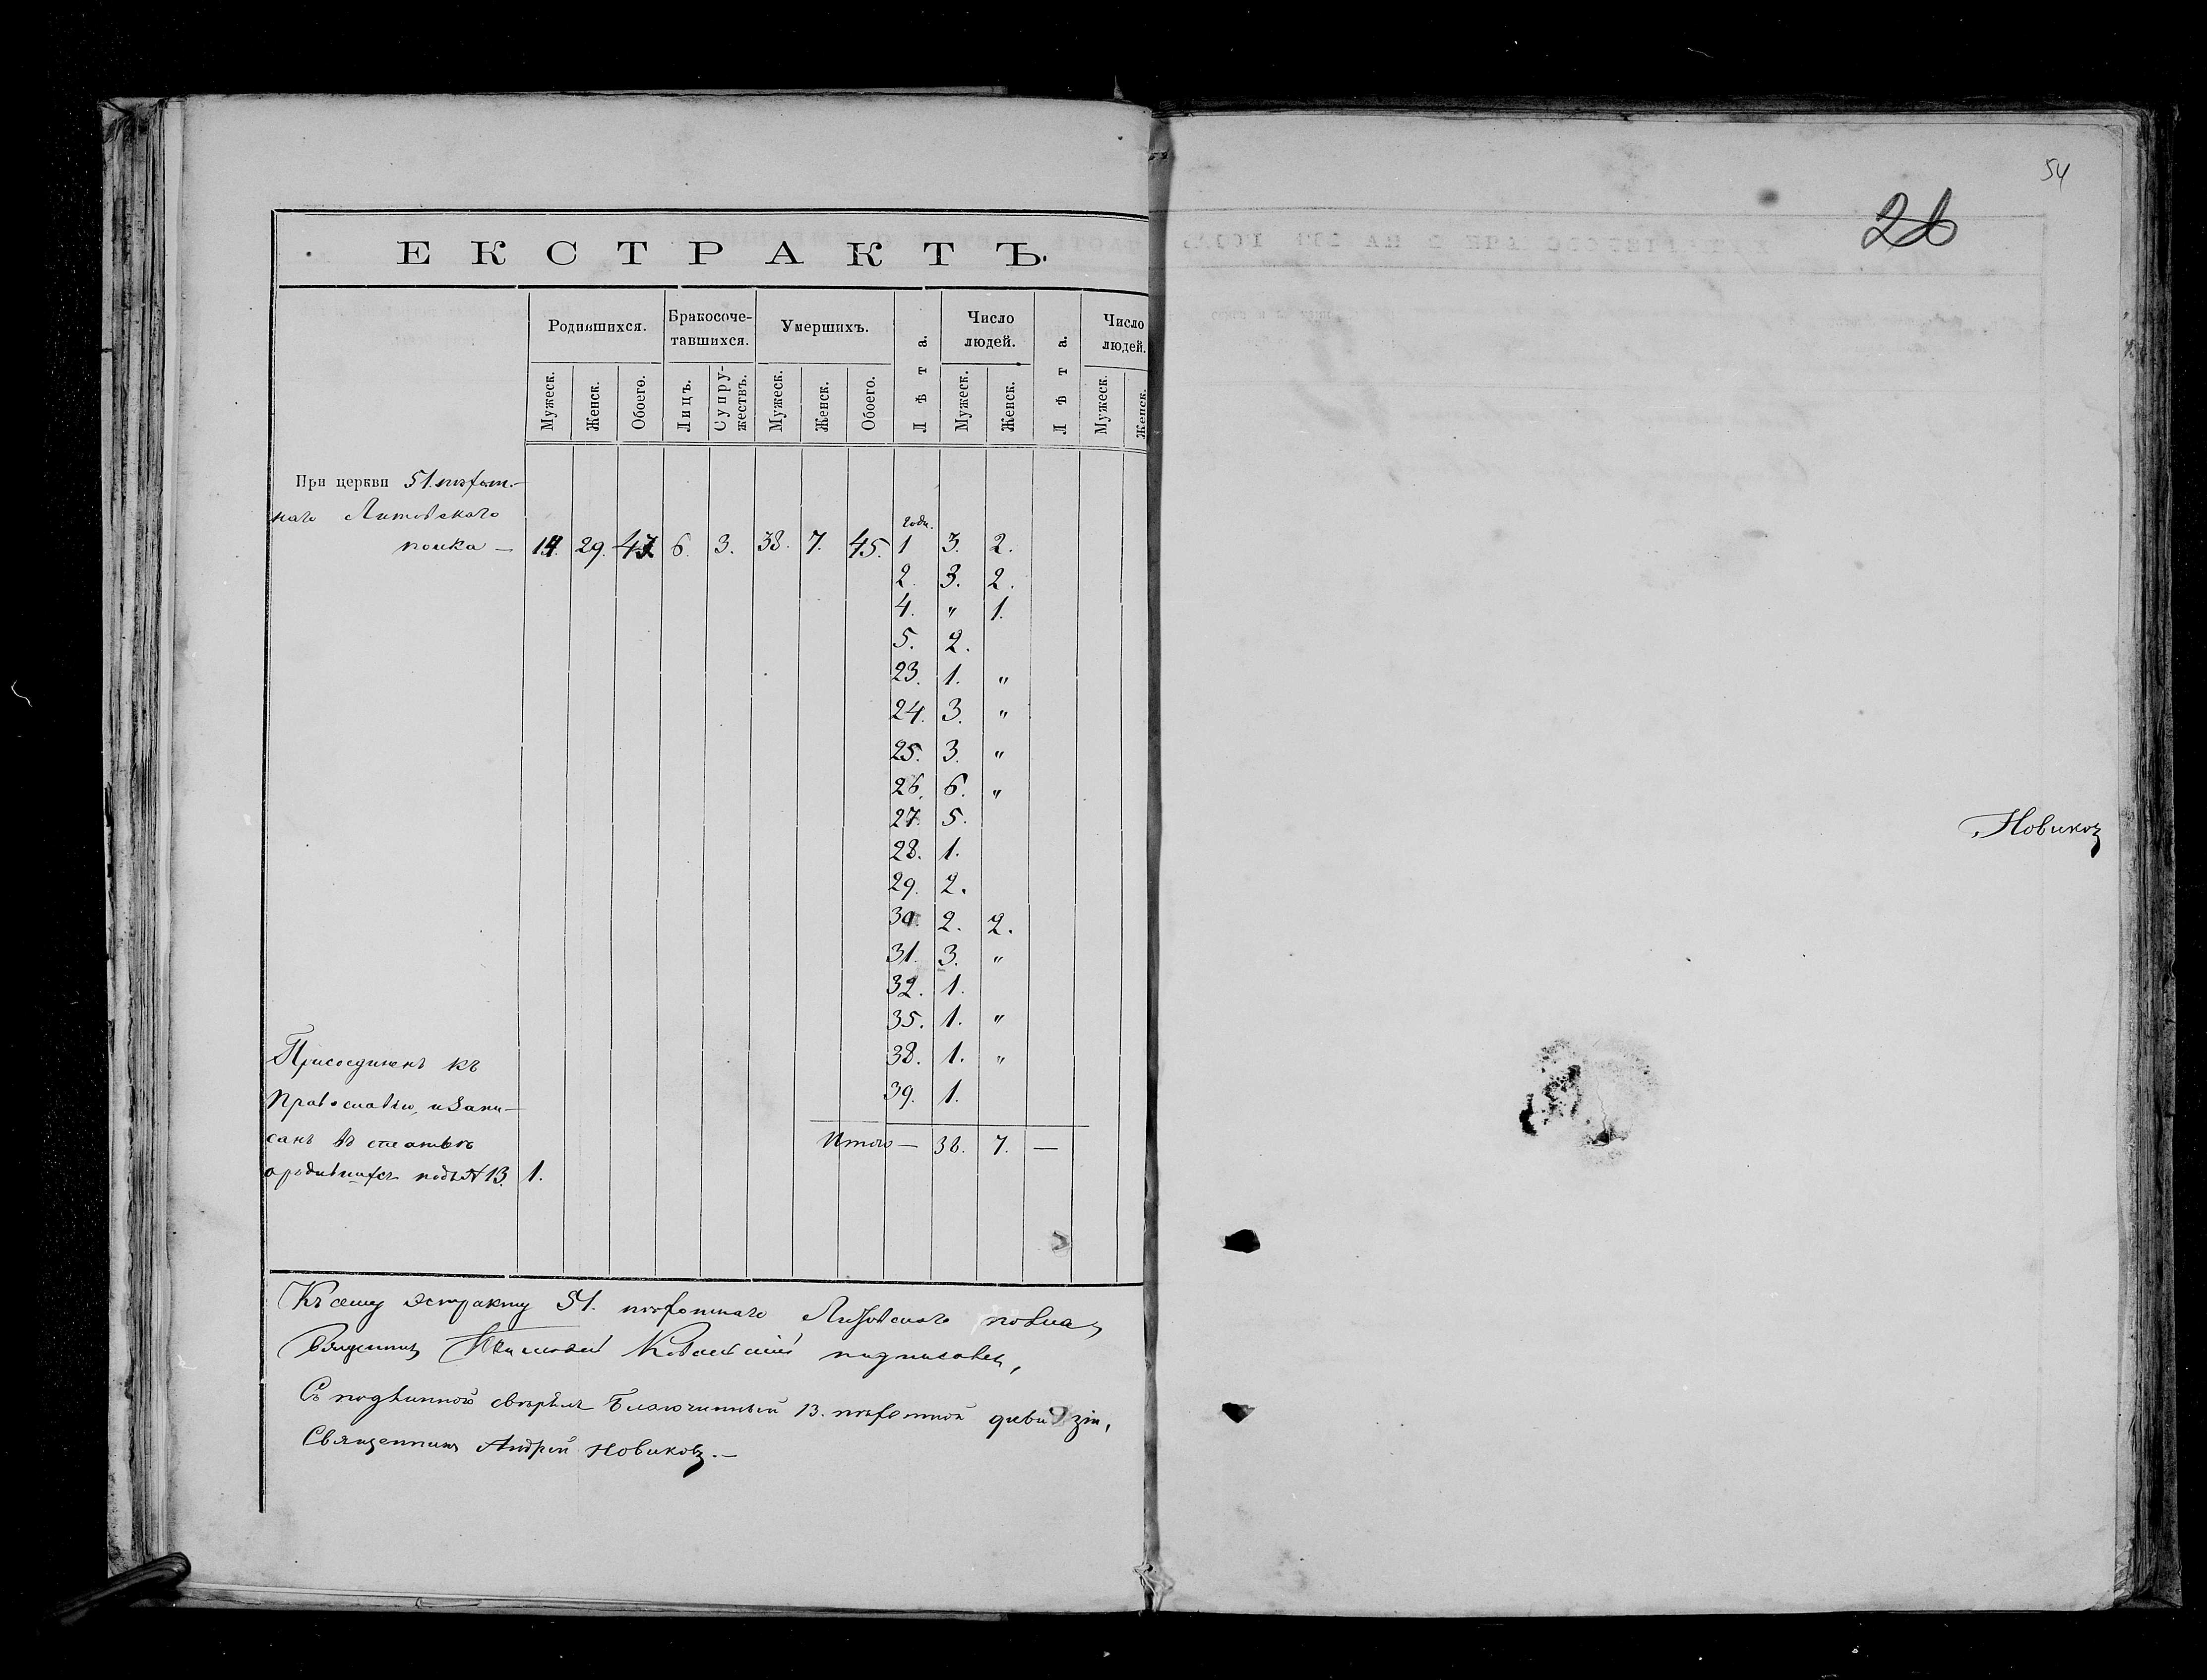 54
26
ЕКСТРАКТЪ.
Родившихся. Бракосоче-тавшихся. Умершихъ. Лѣта. Число людей. Лѣта. Число людей.
Мужеск. Женск. Обоего. Лицъ. Супру-жествъ. Мужеск. Женск. Обоего. Мужеск. Женск. Мужеск. Женск.
При церкви 51. пѣхот-
наго Литовскаго
полка — 14. 29. 43. 6. 3. 38. 7. 45. годы. 1 3. 2.
2. 3. 2.
4. " 1.
5. 2.
23. 1. "
24. 3. "
25. 3. "
26. 6. "
27. 5.
28. 1.
29. 2.
30. 2. 2.
31. 3. "
32. 1.
35. 1. "
38. 1. "
39. 1.
Итого — 38. 7. —
Присоединенъ къ
Православію, и запи-
санъ въ статьѣ
о родившихся подъ № 13. 1.
Къ сему экстракту 51. пѣхотнаго Литовскаго полка
Священникъ подписался,
Съ подлиннымъ свѣрялъ Благочинный 13. пѣхотной дивизіи,
Священникъ Андрей Новиковъ. —
Новиковъ